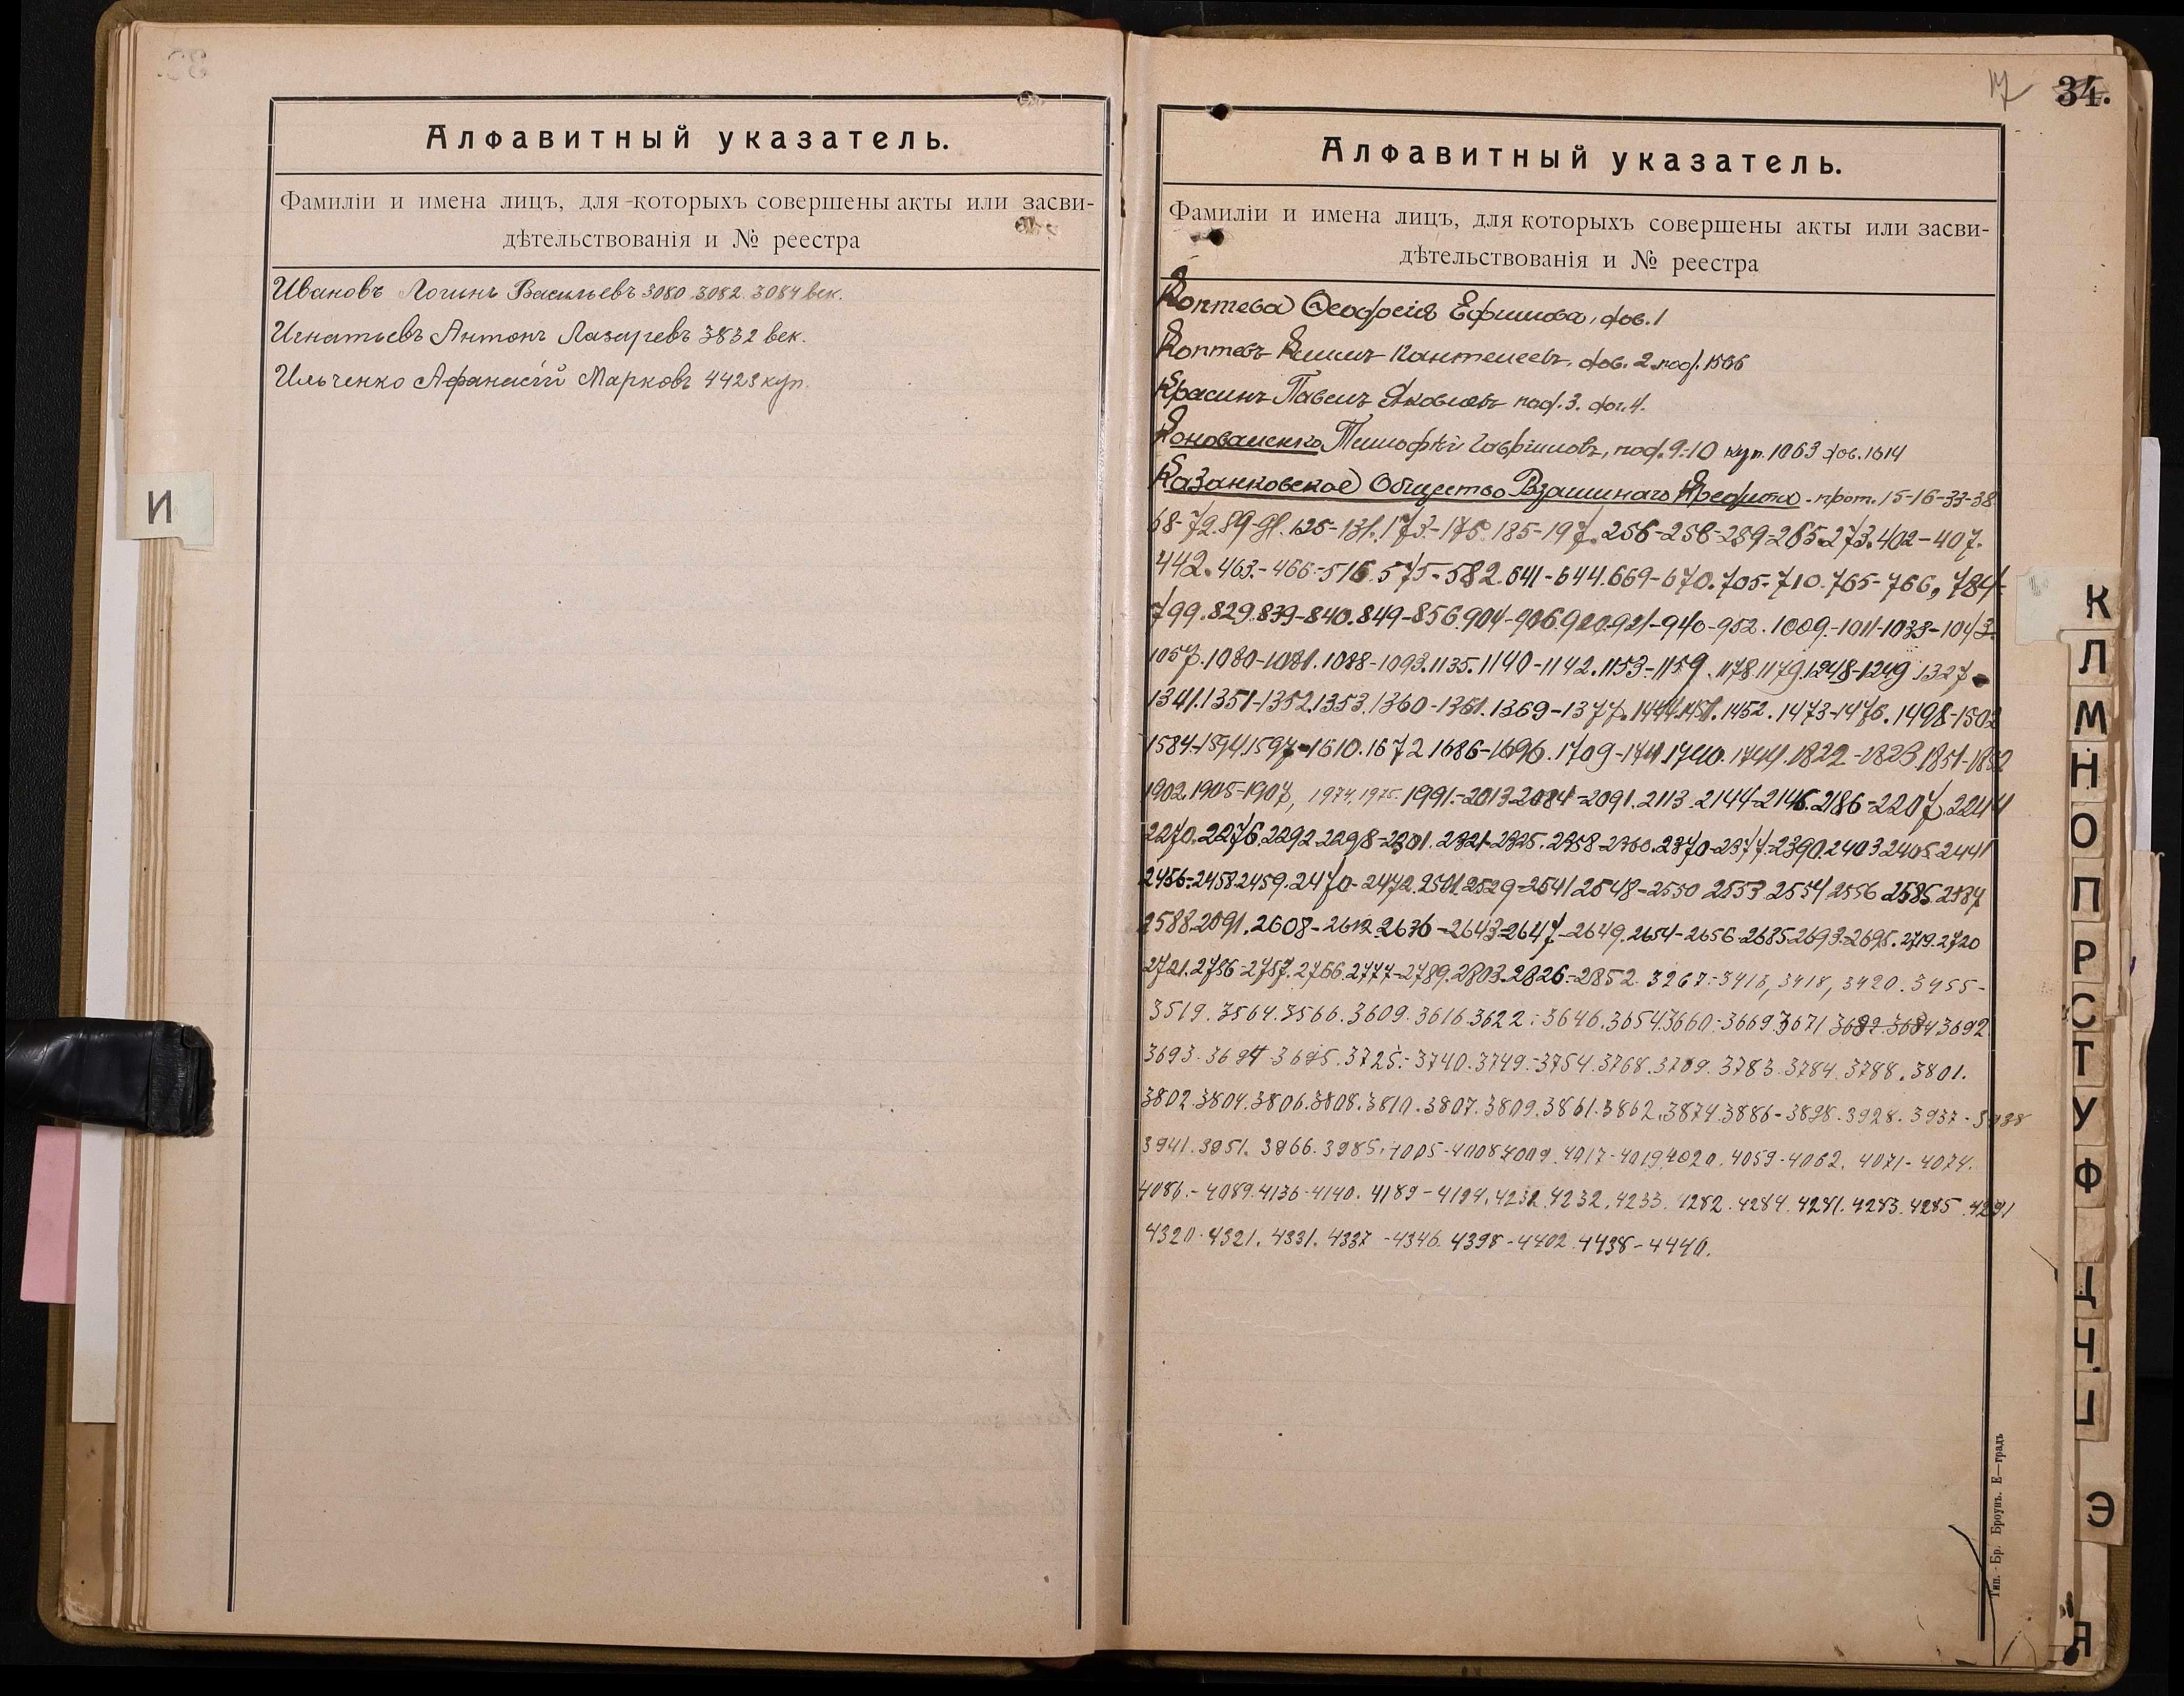 Алфавитный указатель.
Фамиліи и имена лицъ, для которыхъ совершены акты или засви-
дѣтельствованія и № реестра
Ивановъ Логинъ Васильевъ 3080. 3082. 3084 век.
Игнатьевъ Антонъ Лазаревъ 3832 век.
Ильченко Афанасій Марковъ 4423 куп.
И
17
34.
Алфавитный указатель.
Фамиліи и имена лицъ, для которыхъ совершены акты или засви-
дѣтельствованія и № реестра
Коптева Ѳеодосія Ефимова, дов. 1
Коптевъ Пантелеевъ, дов. 2. под. 1566
Красинъ Павелъ Яковлевъ под. 3. дог. 4.
Коноваленко Тимофѣй Гавріиловъ, под. 9-10 куп. 1063 дов. 1614
Казанковское Общество Взаимнаго Кредита - прот. 15-16-33-38
68-72. 89-91. 125-131. 173-175 185-197. 256-258-259-265-273. 402-407.
442. 463-466-516. 575-582. 641-644. 669-670. 705-710. 765-766, 784-
799. 829. 839-840. 849-856. 904-906. 920-921-940-952. 1009-1011-1038-1043.
1057. 1080-1081. 1088-1093. 1135. 1140-1142. 1153-1159. 1178. 1179. 1248-1249. 1327-
1341. 1351-1352. 1353. 1360-1361. 1369-1377. 1444. 1451. 1452. 1473-1476. 1498-1502
1584-1594. 1597-1610. 1672 1686-1696. 1709-1711. 1740. 1744. 1822-1823. 1851-1852
1902. 1905-1907, 1974, 1975. 1991-2013. 2084-2091. 2113. 2144-2146. 2186-2207. 2244
2270. 2276. 2292. 2298-2301. 2321-2325. 2358-2360. 2370-2377-2390. 2403 2405. 2441
2456-2458. 2459. 2470-2472. 2501. 2529-2541 2548-2550 2553 2554 2556 2585. 2587
2588. 2591. 2608-2612. 2636-2643-2647-2649. 2654-2656-2685-2693-2695. 2719. 2720
2721. 2756-2757. 2766. 2777-2789. 2803. 2826-2852. 3267-3416, 3418, 3420. 3455-
3519. 3564. 3566. 3609. 3616. 3622-3646. 3654. 3660-3669. 3671 3682-3684 3692
3693. 3694 3695. 3725-3740. 3749-3754. 3768. 3769. 3783. 3784. 3788. 3801.
3802. 3804. 3806. 3808. 3810. 3807. 3809. 3861. 3862. 3874. 3886-3898. 3928. 3937-3938
3941. 3951. 3966. 3985. 4005-4008 4009. 4017-4019. 4020. 4059-4062. 4071-4074.
4086-4089. 4136-4140. 4189-4194. 4231. 4232. 4233. 4282. 4284. 4281. 4283. 4285. 4291
4320. 4321. 4331. 4337-4346. 4398-4402. 4438-4440.
К
Л
М
Н
О
П
Р
С
Т
У
Ф
Ц
Ч
Э
Я
Тип. Бр. Броунъ. Е—градъ